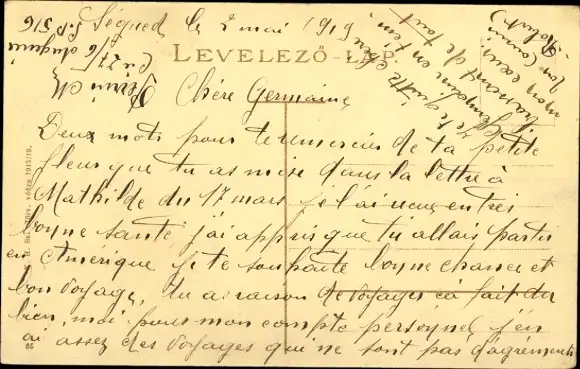 Szeged le 2 mai 1919
LEVELEZŐ-LAP.
Chère Germaine
Deux mots pour te remercier de ta petite
fleur que tu as mise dans la lettre à
Mathilde du 17 mars je l'ai reçue en très
bonne santé, j'ai appris que tu allais partir
en Amérique je te souhaite bonne chance et
bon voyage, tu as raison de voyager ça fait du
bien, moi pour mon compte personnel j'en
ai assez des voyages qui ne sont pas d'agréments
Je te quitte chère
Germaine en t'em
brassant de tout
mon cœur.
Ton Cousin
(Robert)
S.P. 516